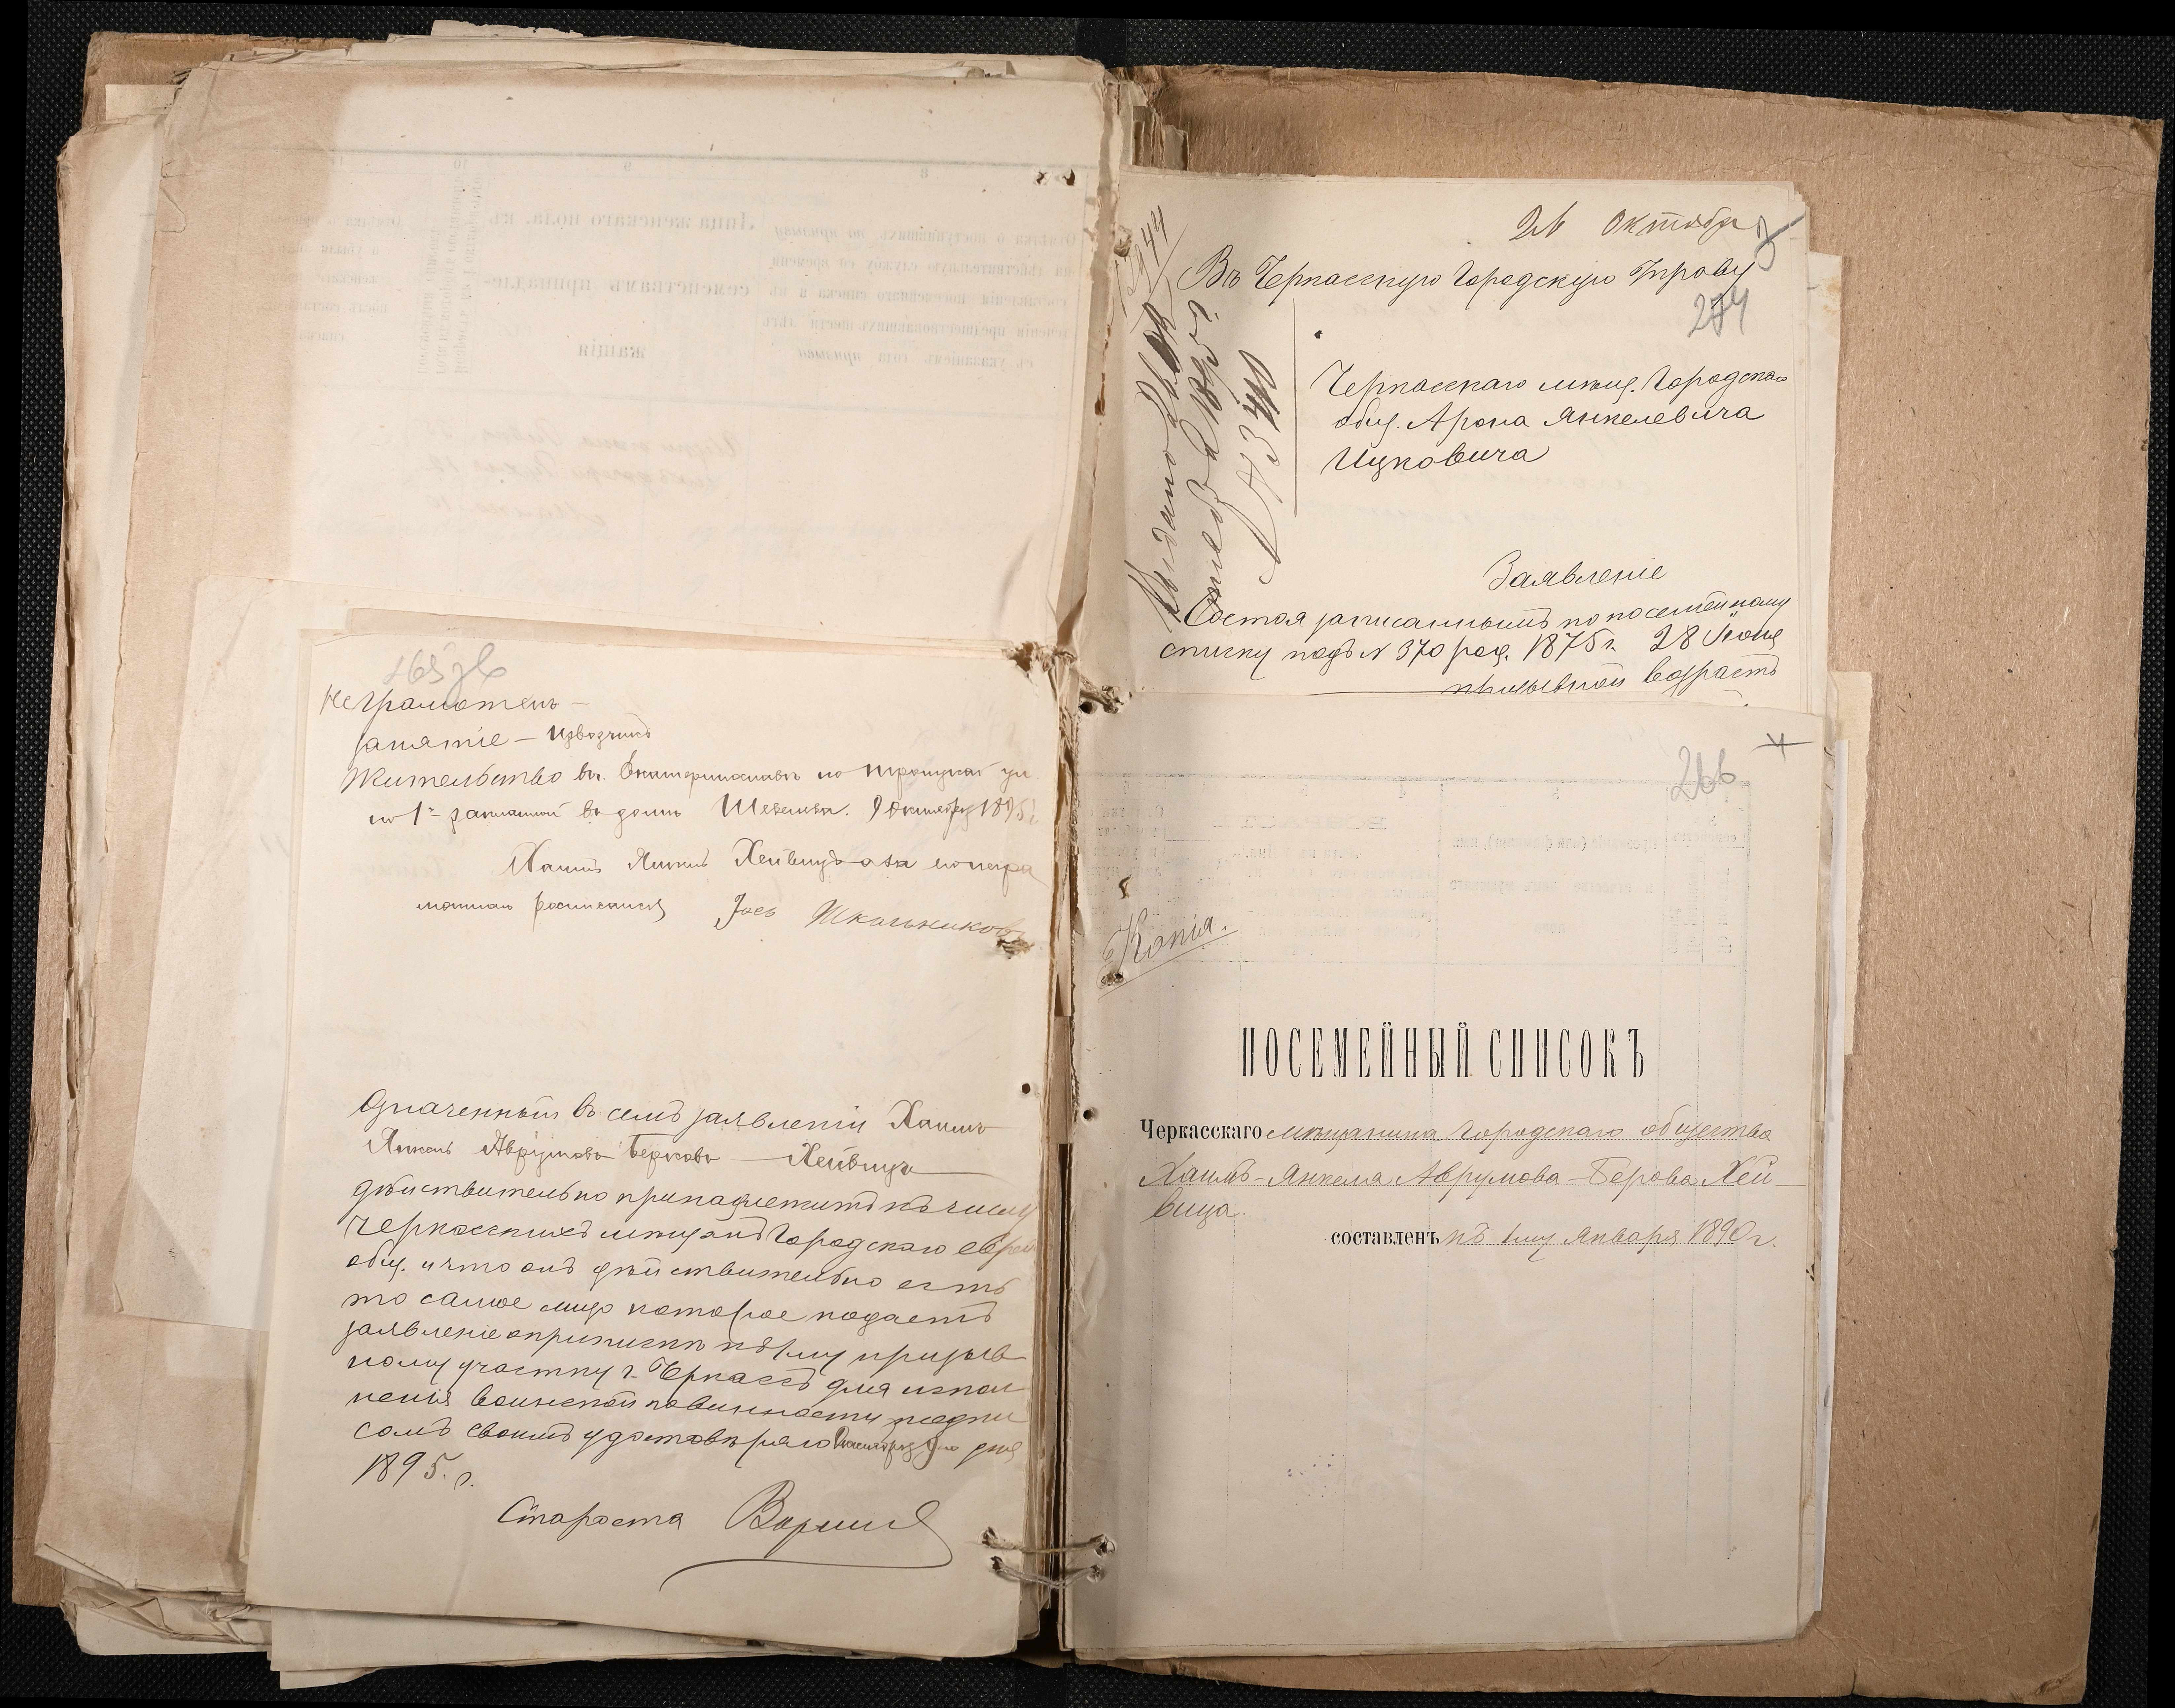 Неграмотенъ —
занятіе — извозчикъ
Жительство въ г. Екатеринославѣ по Троицкой ул.
въ домѣ 9 Октября 1895 г.
Хаимъ Янкель Хейвицъ а за его негра
мотнаго росписался Іось Школьниковъ
Означенный въ семъ заявленіи Хаимъ
Янкель Аврумовъ Берковъ — Хейвицъ
дѣйствительно принадлежитъ къ числу
Черкасскихъ мѣщанъ Городскаго еврей
общ. и что онъ дѣйствительно есть
то самое лицо которое подаетъ
заявленіе о припискѣ къ 1му призыв
ному участку г. Черкассъ для испол
ненія воинской повинности подпи
сомъ своимъ удостовѣряю Октября 9го дня
1895. г.
Староста
26 Октября
Въ Черкасскую Городскую Управу
274
Черкасскаго мѣщ. Городскаго
общ. Арона Янкелевича
Ицковича
Выдано
1895 г.
Заявленіе
Состоя записаннымъ по посемейному
списку подъ № 370 род. 1875 г. 28 Іюня
призывной возрастъ
266
Копія.
ПОСЕМЕЙНЫЙ СПИСОКЪ
Черкасскаго мѣщанина Городскаго общества
Хаимъ-Янкеля Аврумова-Берова Хей-
вица.
составленъ къ 1му Января 1890 г.